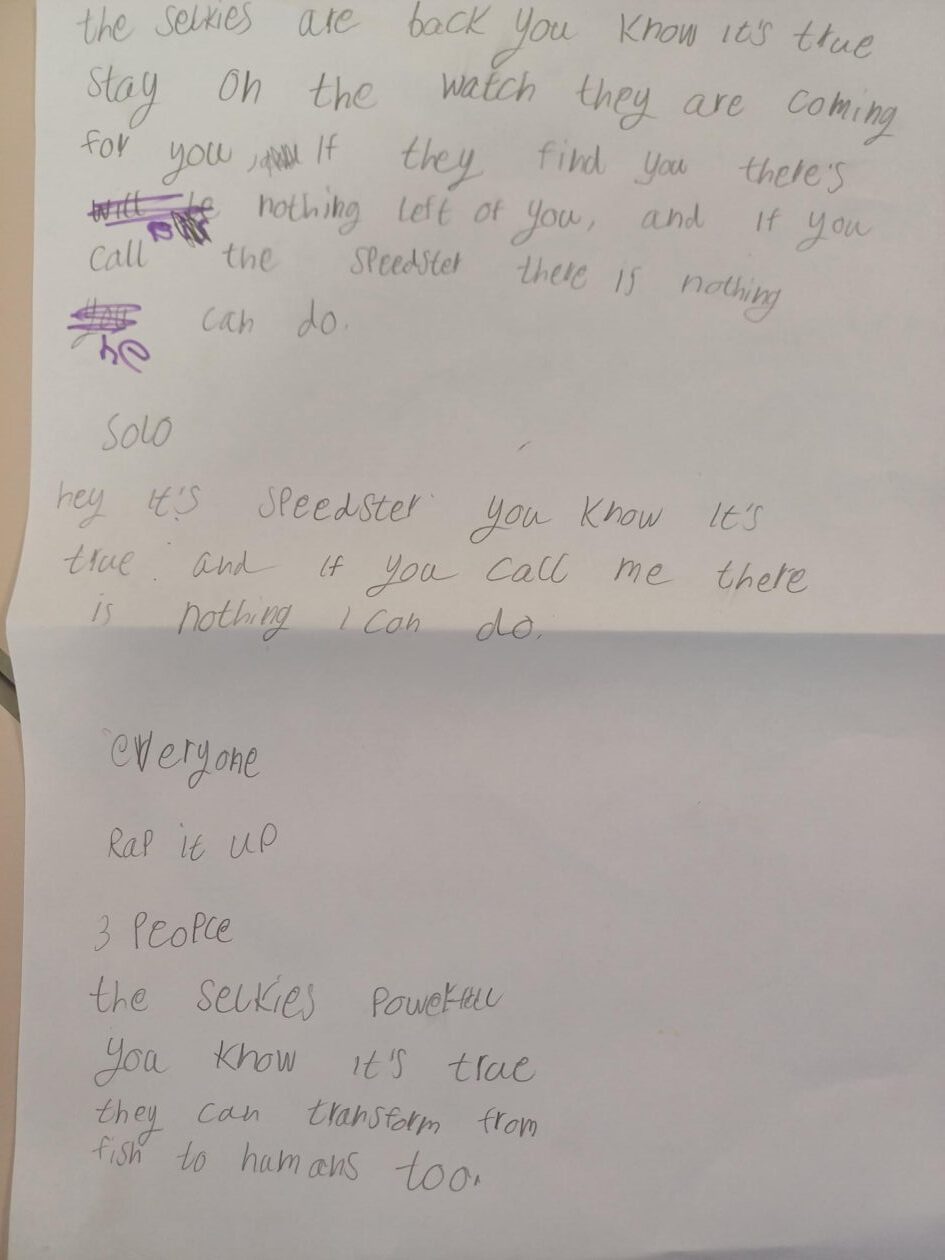 the selkies are back you know it's true
stay on the watch they are coming
for you, If they find you there's
will be nothing left of you, and if you
is
call the speedster there is nothing
you can do.
he
Solo
hey it's speedster you know it's
true. and if you call me there
is nothing I can do.
everyone
Rap it up
3 People
the selkies powerfull
you know it's true
they can transform from
fish to humans too.